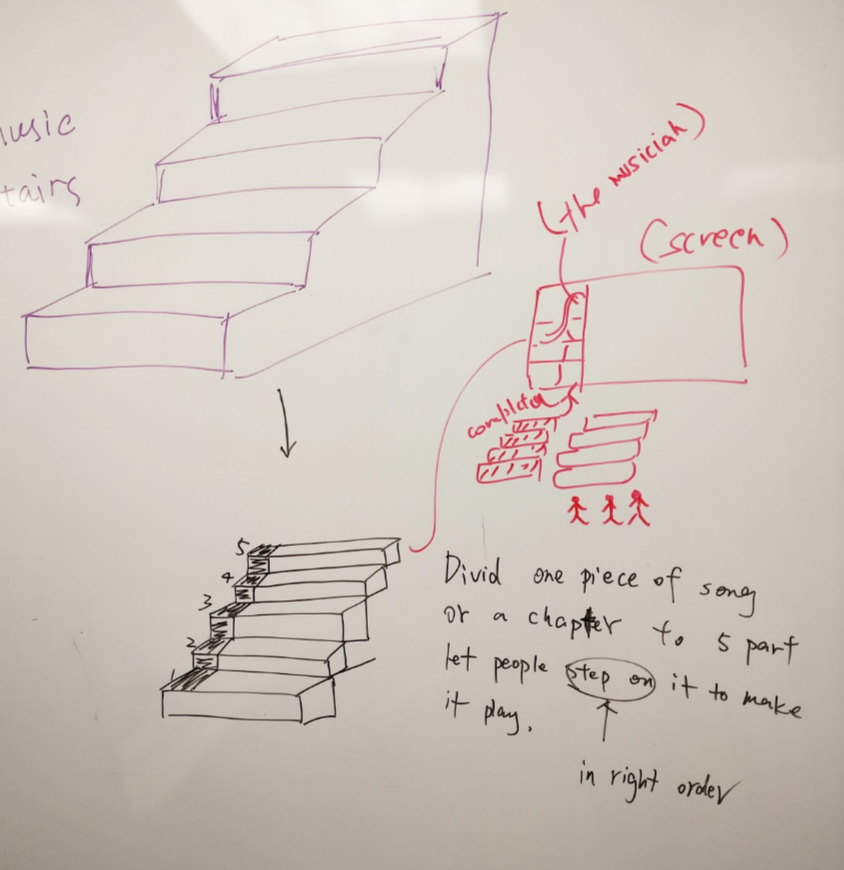 music
stairs
(the musician)
(screen)
completed
5
4
3
2
1
Divid one piece of song
or a chapter to 5 part
let people step on it to make
it play.
in right order